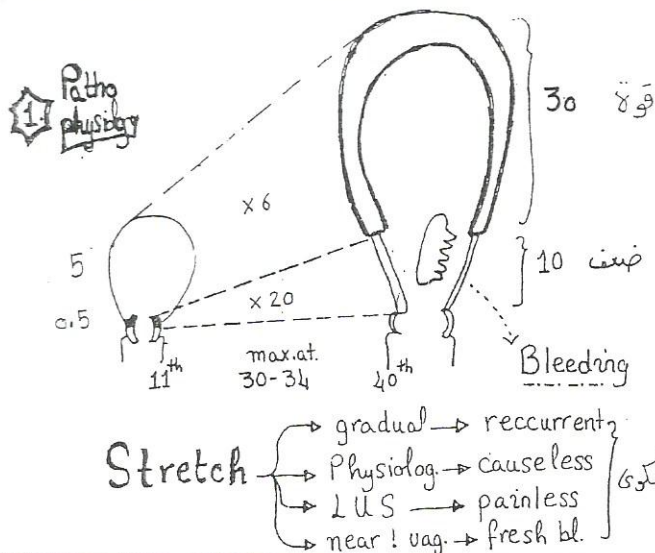 1. Patho
physiology
30 قوة
x 6
5
10 ضعف
0.5
x 20
11th
max.at.
30-34
40th
Bleeding
Stretch
gradual → reccurent
Physiolog. → causeless
LUS → painless
near ! vag. → fresh bl.